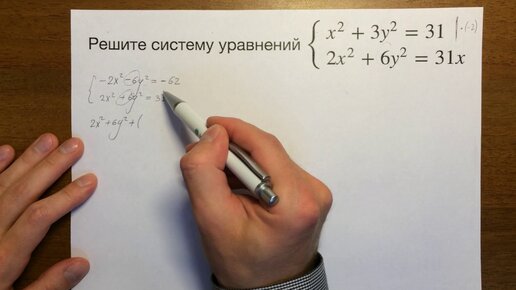 Решите систему уравнений { x² + 3y² = 31 | · (-2)
2x² + 6y² = 31x
{ -2x² - 6y² = -62
2x² + 6y² = 3
2x² + 6y² + (